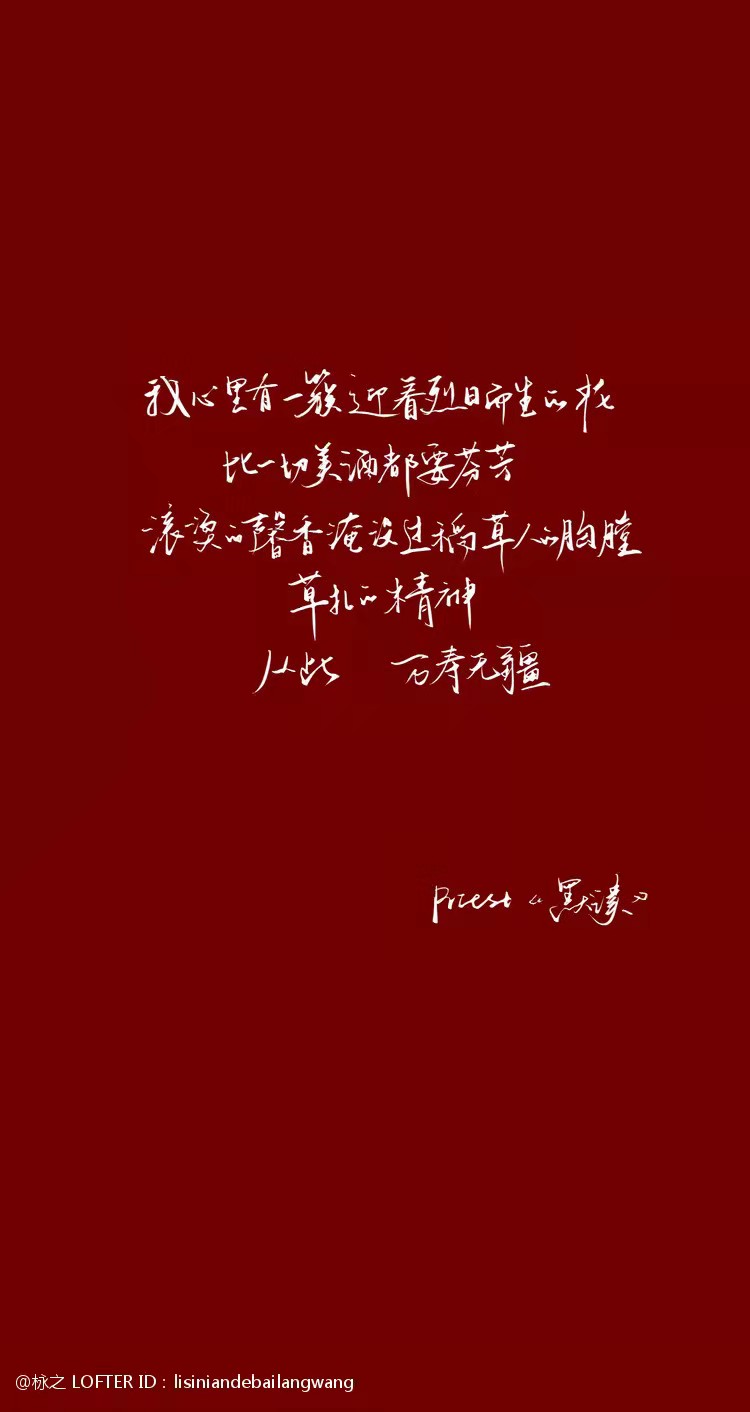 我心里有一簇迎着烈日而生的花
比一切美酒都要芬芳
滚烫的馨香淹没过稻草人的胸膛
草扎的精神
从此 万寿无疆
Priest《默读》
@栐之 LOFTER ID：lisiniandebailangwang